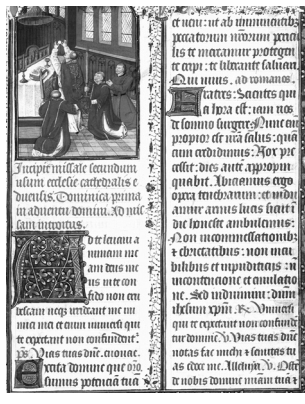 Incipit missale secundum
usum ecclesie cathedralis e
duensis. Dominica prima
in adventu domini. Ad mis
sam introitus.
Ad te levavi a
nimam me
am deus me
us in te con
fido non eru
bescam neqz irrideant me ini
mici mei et enim universi qui
te expectant non confundent̃.
p̃s. Vias tuas dñe. euouae.
Excita domine que᷒ oro.
sumus potenciã tuã
et veni: ut ab iminentibz
peccatorum nr̃orum pericu
lis te mereamur protegen
te eripi: te liberante salvari.
Qui vivis. ad romanos.
Fratres: Scientes qui
a hora est: iam nos
de somno surgere. Nunc enĩ
propior est nr̃a salus: quã
cum credidimus. Nox pre
cessit: dies autẽ appropin
quabit. Abiciamus ergo
opera tenebrarum: et indu
amur arma lucis sicut ĩ
die honeste ambulemus:
Non in comessationibz
et ebrietatibus: non in cu
bilibus et inpudiciciis: nõ
in contencione et emulatio
ne. Sed induimini dñm
ihesum xp̃um. R̃. Universi
qui te expectant non confund̃
tur domine. V̾. Vias tuas dñe
notas fac michi et semitas tu
as edoce me. Alleluya. V̾. Oste
de nobis domine miam̃ tuã et